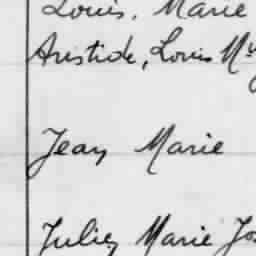 Louis, Marie
Aristide, Louis
Jean Marie
Julien Marie